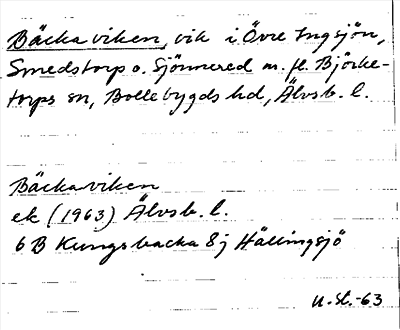 Bäckaviken, vik i Övre Ingsjön,
Smedstorp o. Sjönnered m. fl. Björke-
torps sn, Bollebygds hd, Älvsb. l.
Bäckaviken
ek (1963) Älvsb. l.
6 B Kungsbacka 8j Hällingsjö
u. sl.-63